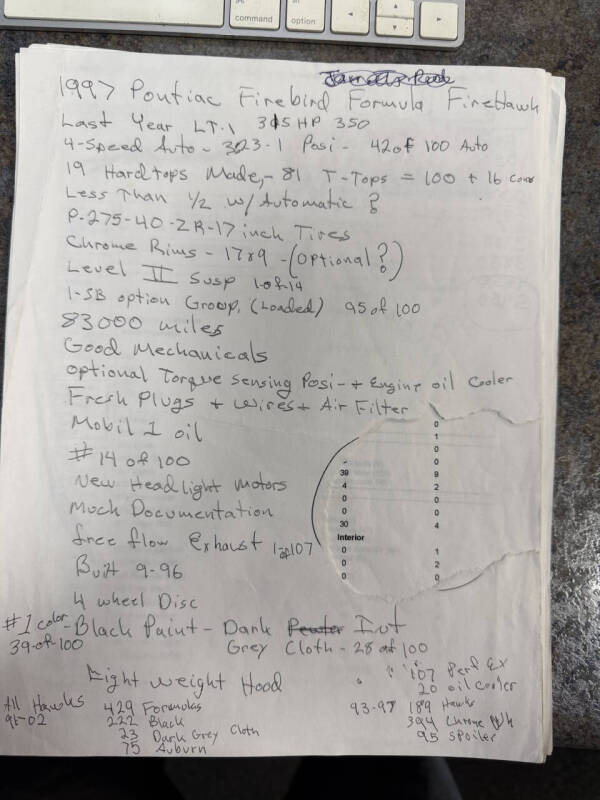 command
option
1997 Pontiac Firebird Formula FireHawk
Last Year LT-1 305 HP 350
4-Speed Auto - 323-1 Posi - 42 of 100 Auto
19 Hardtops Made, - 81 T-Tops = 100 + 16 Conv
Less Than 1/2 w/ Automatic ?
P-275-40-ZR-17 inch Tires
Chrome Rims - 17x9 - (Optional ?)
Level II Susp 1 of 14
1-SB option Group, (Loaded) 95 of 100
83000 miles
Good Mechanicals
optional Torque Sensing Posi - + Engine oil Cooler
Fresh Plugs + Wires + Air Filter
Mobil 1 oil
#14 of 100
New Headlight Motors
Much Documentation
free flow Exhaust 1 of 107
Built 9-96
4 wheel Disc
0
1
0
0
39 9
4 2
0 0
0 0
30 4
Interior
0 1
0 2
0 0
#1 color - Black Paint - Dark Int
39 of 100 Grey Cloth - 28 of 100
Light Weight Hood
" " 107 Perf Ex
" 20 oil Cooler
All Hawks 429 Formulas 93-97 189 Hawks
91-02 222 Black 394 Chrome
23 Dark Grey Cloth 95 Spoiler
75 Auburn